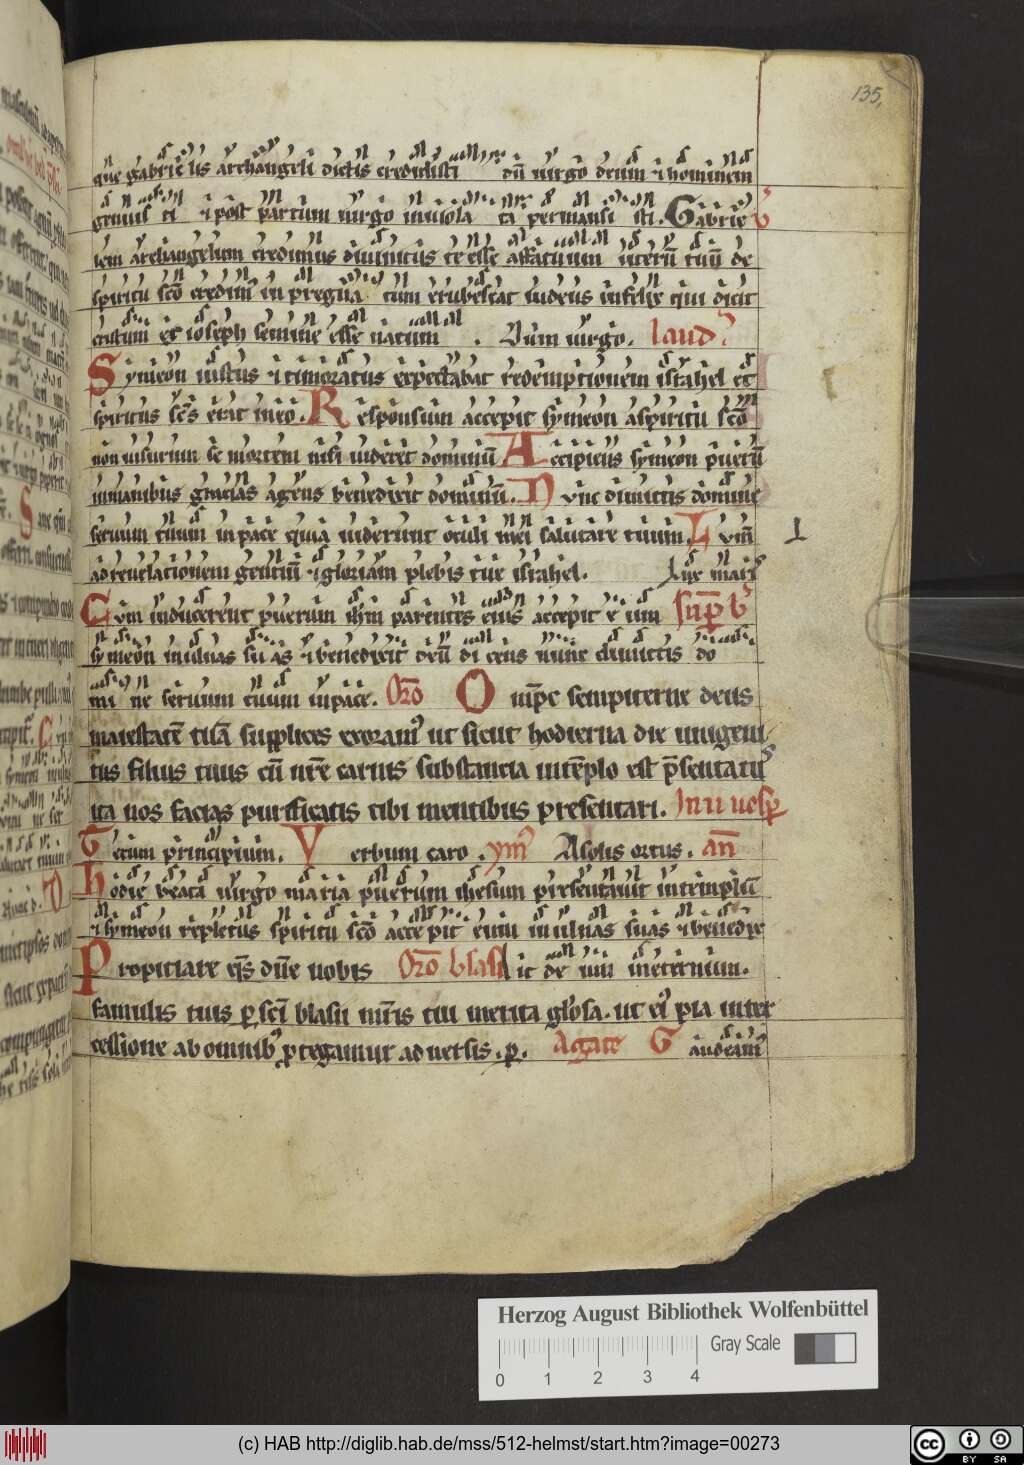 135,
que gabrie lis archangeli dictis credidisti dū uirgo deum ⁊ hominem
genuis ti ⁊ post partum uirgo inuiola ta permansi sti. Gabrie V̕
lem archangelum credimus diuinitus te esse affatum uterū tuū de
spiritu scō credim̕ in pregna tum erubescat iudeus infelix qui dicit
cristum ex ioseph semine esse natum . Dum uirgo. laud̕.
Symeon iustus ⁊ timoratus expectabat redemptionem israhel et
spiritus sc̄s erat in eo. Responsum accepit symeon a spiritu scō
non uisurum se mortem nisi uideret dominū Accipiens symeon puerū
in manibus gracias agens benedixit dominū. Nunc dimittis domine
seruum tuum in pace quia uiderunt oculi mei salutare tuum. Lum̄
ad reuelationem gentiū ⁊ gloriam plebis tue israhel. Lux maris
Cum inducerent puerum ihm̄ parentes eius accepit e um sup̄ b̕
symeon in ulnas su as ⁊ benedixit deū di cens nunc dimittis do
mi ne seruum tuum in pace. Orō Omp̄c sempiterne deus
maiestatē tuā supplices exoram̕ ut sicut hodierna die unigeni
tus filius tuus cū nr̄e carnis substancia in tēplo est p̄sentatus̕
ita nos facias purificatis tibi mentibus presentari. In ii uesp̄
Tecum principium. V erbum caro . ym̄ Asolis ortus. an̄
Hodie beata uirgo maria puerum ihesum presentauit in templū
⁊ symeon repletus spiritu scō acce pit eum in ulnas suas ⁊ benedixe
Propitiare qs̄ dn̄e nobis Orō blasii it de um in eternum.
famulis tuis p sc̄i blasii mr̄is tui merita glōsa. ut ei̕ pia inter
cessione ab omnib̕ p̱tegamur aduersis. p̱. Agate Gaudeam̕
Herzog August Bibliothek Wolfenbüttel
Gray Scale
0 1 2 3 4
(c) HAB http://diglib.hab.de/mss/512-helmst/start.htm?image=00273
cc BY SA